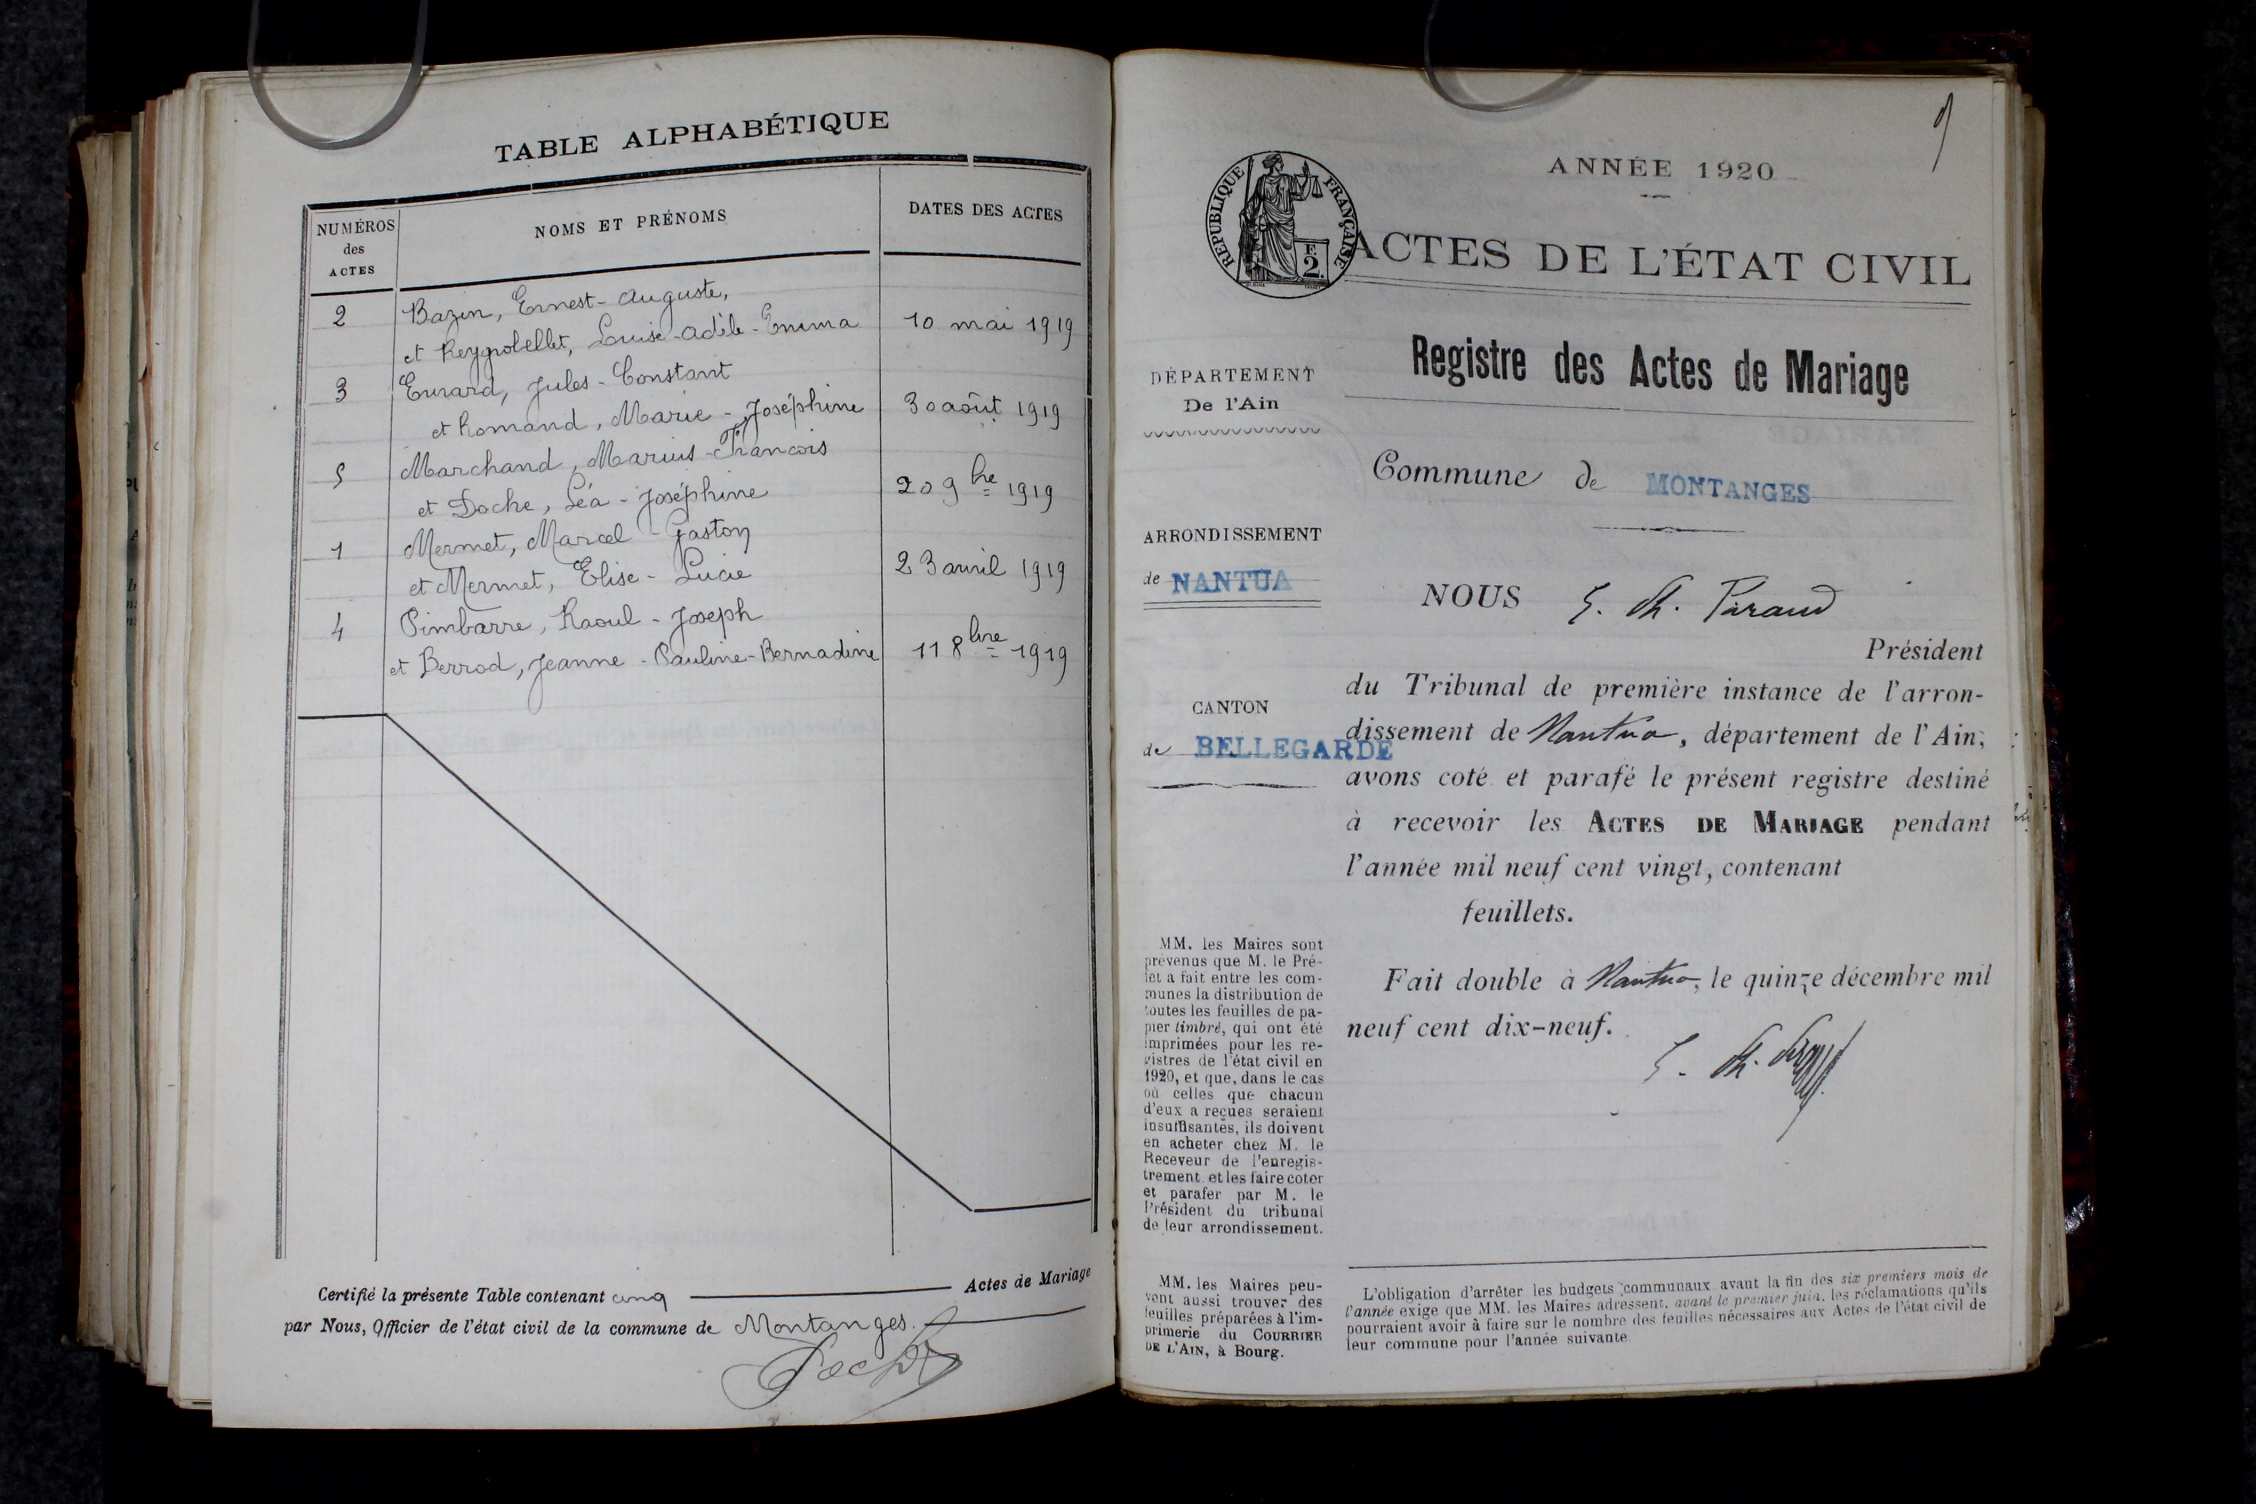 TABLE ALPHABÉTIQUE
NUMÉROS
des
ACTES
NOMS ET PRÉNOMS
DATES DES ACTES
2
Bazin, Ernest-Auguste,
et Reygrobellet, Louise-Adèle-Emma
10 mai 1919
3
Evrard, Jules-Constant
et Romand, Marie-Joséphine
30 août 1919
5
Marchand, Marius-François
et Doche, Léa-Joséphine
20 9bre 1919
1
Mermet, Marcel-Gaston
et Mermet, Elise-Lucie
23 avril 1919
4
Pimbarre, Raoul-Joseph
et Berrod, Jeanne-Pauline-Bernadine
11 8bre 1919
Certifié la présente Table contenant cinq Actes de Mariage
par Nous, Officier de l'état civil de la commune de Montanges.
ANNÉE 1920
RÉPUBLIQUE FRANÇAISE
F
2
ACTES DE L'ÉTAT CIVIL
Registre des Actes de Mariage
DÉPARTEMENT
De l'Ain
Commune de MONTANGES
ARRONDISSEMENT
de NANTUA
CANTON
de BELLEGARDE
NOUS
Président
du Tribunal de première instance de l'arron-
dissement de Nantua, département de l'Ain,
avons coté et parafé le présent registre destiné
à recevoir les ACTES DE MARIAGE pendant
l'année mil neuf cent vingt, contenant
feuillets.
Fait double à Nantua, le quinze décembre mil
neuf cent dix-neuf.
MM. les Maires sont
prévenus que M. le Pré-
fet a fait entre les com-
munes la distribution de
toutes les feuilles de pa-
pier timbré, qui ont été
imprimées pour les re-
gistres de l'état civil en
1920, et que, dans le cas
où celles que chacun
d'eux a reçues seraient
insuffisantes, ils doivent
en acheter chez M. le
Receveur de l'enregis-
trement et les faire coter
et parafer par M. le
Président du tribunal
de leur arrondissement.
MM. les Maires peu-
vent aussi trouver des
feuilles préparées à l'im-
primerie du COURRIER
DE L'AIN, à Bourg.
L'obligation d'arrêter les budgets communaux avant la fin des six premiers mois de
l'année exige que MM. les Maires adressent, avant le premier juin, les réclamations qu'ils
pourraient avoir à faire sur le nombre des feuilles nécessaires aux Actes de l'état civil de
leur commune pour l'année suivante